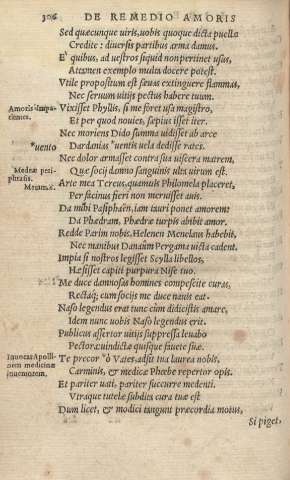 306 DE REMEDIO AMORIS
Sed quæcunque uiris, uobis quoque dicta puellæ
Credite: diuersis partibus arma damus.
E' quibus, ad uestros siquid non pertinet usus,
Attamen exemplo multa docere potest.
Vtile propositum est sæuas extinguere flammas,
Nec seruum uitijs pectus habere suum.
Amoris impa-
tientes.
Vixisset Phyllis, si me foret usa magistro,
Et per quod nouies, sæpius isset iter.
Nec moriens Dido summa uidisset ab arce
*uento
Dardanias *uentis uela dedisse rates.
Nec dolor armasset contra sua uiscera matrem,
Medeæ peri-
phrasis.
Que socij damno sanguinis ulta uirum est.
Metam. 6.
Arte mea Tereus, quamuis Philomela placeret,
Per facinus fieri non meruisset auis.
Da mihi Pasiphaën, iam tauri ponet amorem:
Da Phædram, Phædræ turpis abibit amor.
Redde Parim nobis, Helenen Menelaus habebit,
Nec manibus Danaûm Pergama uicta cadent.
Impia si nostros legisset Scylla libellos,
Hæsisset capiti purpura Nise tuo.
Me duce damnosas homines compescite curas,
Rectaq; cum socijs me duce nauis eat.
Naso legendus erat tunc cùm didicistis amare,
Idem nunc uobis Naso legendus erit.
Publicus assertor uitijs suppressa leuabo
Pectora: uindictæ quisque fauete suæ.
Inuocat Apolli-
nem medicinæ
inuentorem.
Te precor ô Vates, adsit tua laurea nobis,
Carminis, & medicæ Phœbe repertor opis.
Et pariter uati, pariter succurre medenti.
Vtraque tutelæ subdita cura tuæ est
Dum licet, & modici tangunt præcordia motus,
Si piget,